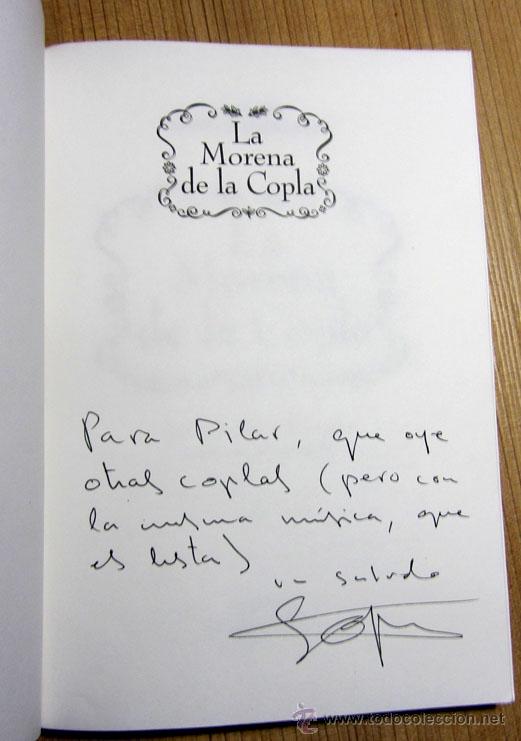 La
Morena
de la Copla
Para Pilar, que oye
otras coplas (pero con
la misma música, que
es lista)
un saludo
todocoleccion
www.todocoleccion.net